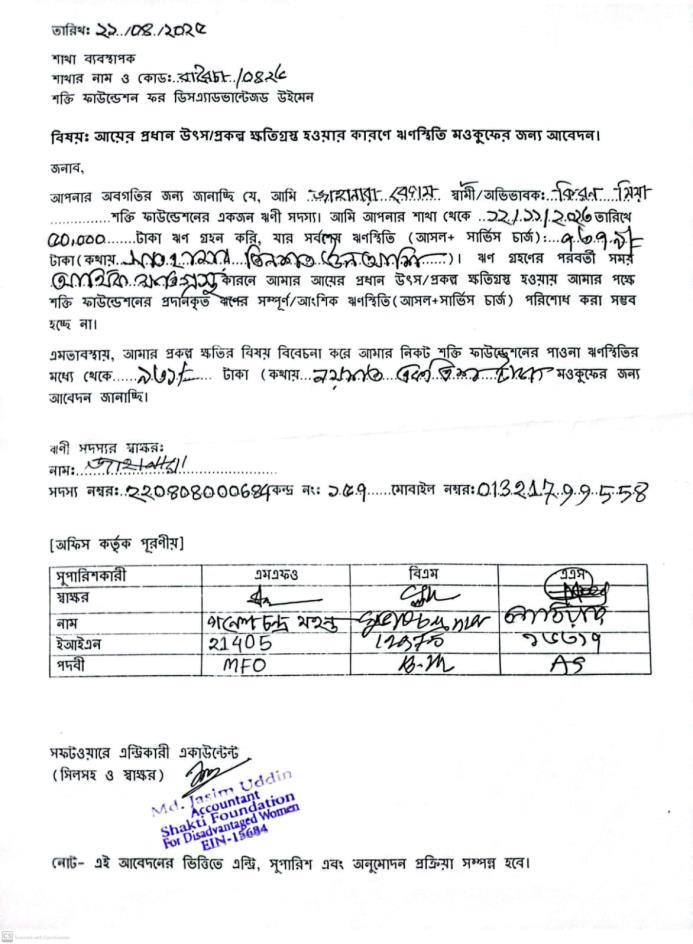 তারিখঃ ২১/০৪/২০২৫
শাখা ব্যবস্থাপক
শাখার নাম ও কোড:../0424
শক্তি ফাউন্ডেশন ফর ডিসএ্যাডভান্টেজড উইমেন
বিষয়ঃ আয়ের প্রধান উৎস/প্রকল্প ক্ষতিগ্রস্থ হওয়ার কারণে ঋণস্থিতি মওকুফের জন্য আবেদন।
জনাব,
আপনার অবগতির জন্য জানাচ্ছি যে, আমি জাহানারা বেগম স্বামী/অভিভাবক: কিরন মিয়া
শক্তি ফাউন্ডেশনের একজন ঋণী সদস্য। আমি আপনার শাখা থেকে ..তারিখে
৫০,০০০......টাকা ঋণ গ্রহন করি, যার সর্বশেষ ঋণস্থিতি (আসল+ সার্ভিস চার্জ):
টাকা (কথায়..)। ঋণ গ্রহণের পরবর্তী সময়
কারনে আমার আয়ের প্রধান উৎস/প্রকল্প ক্ষতিগ্রস্থ হওয়ায় আমার পক্ষে
শক্তি ফাউন্ডেশনের প্রদানকৃত ঋণের সম্পূর্ণ/আংশিক ঋণস্থিতি(আসল+সার্ভিস চার্জ) পরিশোধ করা সম্ভব
হচ্ছে না।
এমতাবস্থায়, আমার প্রকল্প ক্ষতির বিষয় বিবেচনা করে আমার নিকট শক্তি ফাউন্ডেশনের পাওনা ঋণস্থিতির
মধ্যে থেকে...... টাকা (কথায়.. মওকুফের জন্য
আবেদন জানাচ্ছি।
ঋণী সদস্যর স্বাক্ষর:
নাম:..জাহানারা
সদস্য নম্বরঃ.220808000684 কেন্দ্র নং: ১৫৭......মোবাইল নম্বরঃ 01321799558
[অফিস কর্তৃক পূরণীয়]
সুপারিশকারী এমএফও বিএম এএস
স্বাক্ষর
নাম চন্দ্র
ইআইএন 21405 12975
পদবী MFO B.M AS
সফটওয়ারে এন্ট্রিকারী একাউন্টেন্ট
(সিলসহ ও স্বাক্ষর)
Md. Jasim Uddin
Accountant
Shakti Foundation
For Disadvantaged Women
EIN-15684
নোট- এই আবেদনের ভিত্তিতে এন্ট্রি, সুপারিশ এবং অনুমোদন প্রক্রিয়া সম্পন্ন হবে।